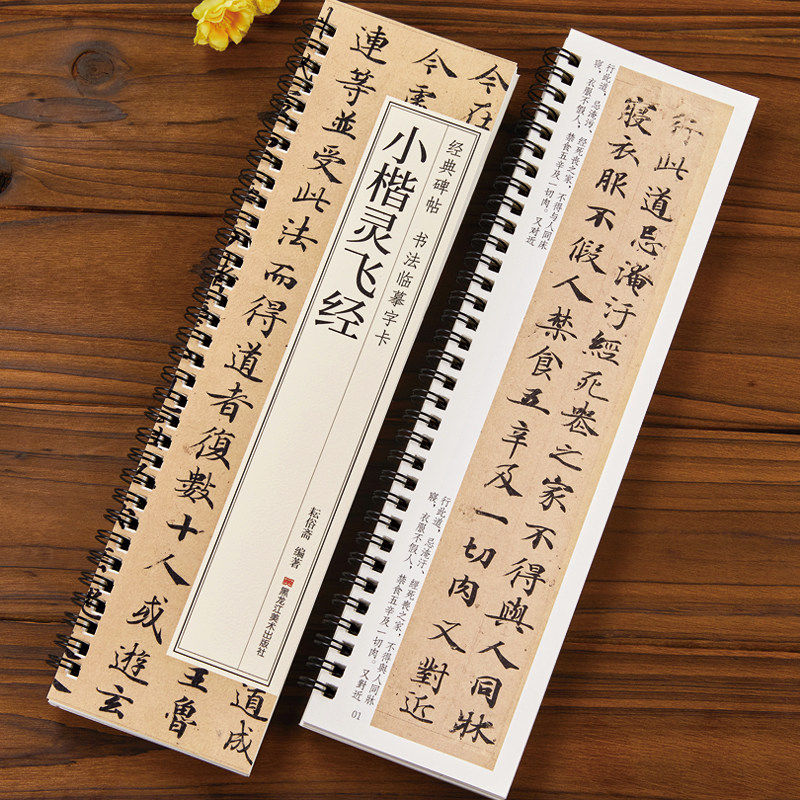 经典碑帖 书法临摹字卡
小楷灵飞经
耘俗斋 编著
黑龙江美术出版社
今在
道成
王魯
連等並受此法而得道者復數十人或遊玄
行此道,忌淹污、经死丧之家,不得与人同床
寝,衣服不假人,禁食五辛及一切肉。又对近
行此道忌淹汙經死喪之家不得與人同牀
寢衣服不假人禁食五辛及一切肉又對近
行此道,忌淹汙、經死喪之家,不得與人同牀
寢,衣服不假人,禁食五辛及一切肉。又對近
01